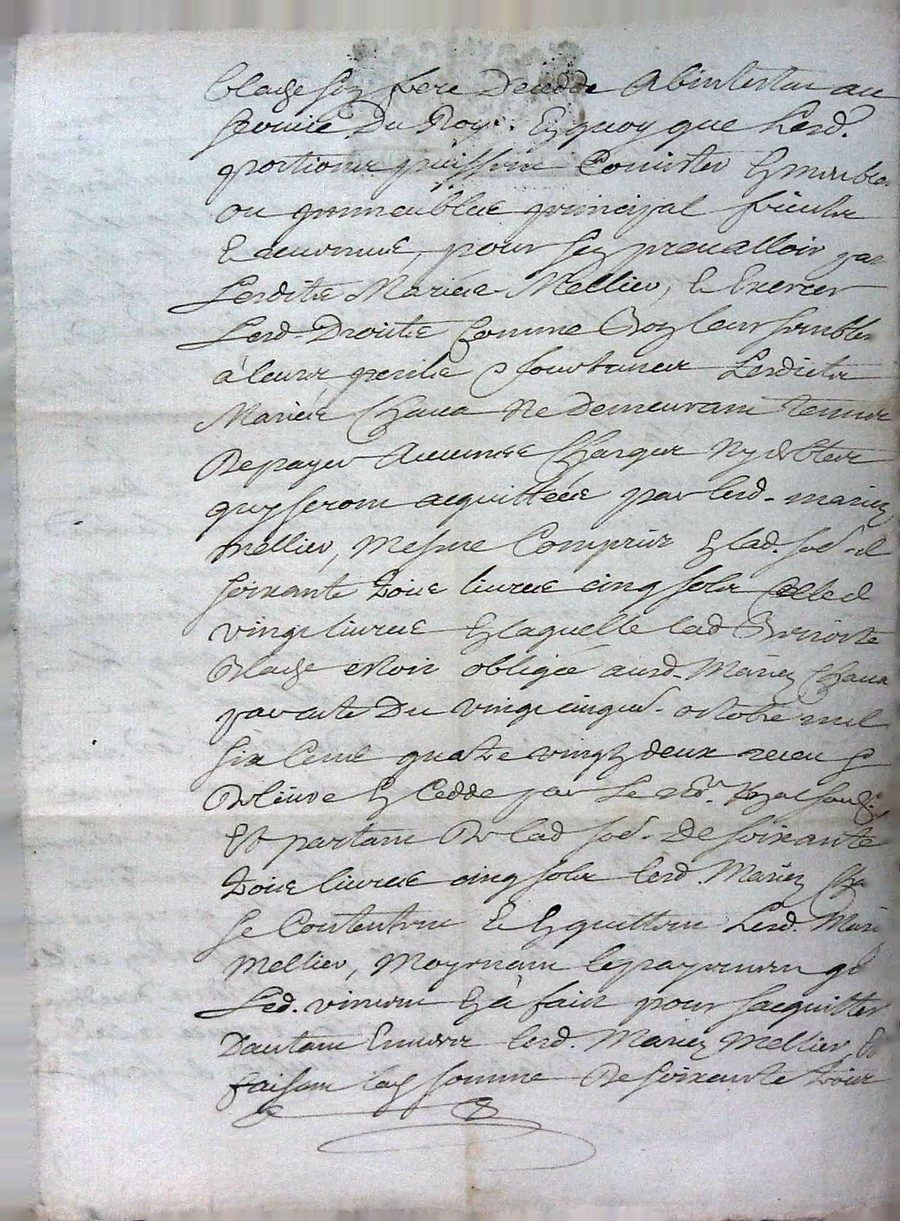 blaze son frere decedde abintestat au
service du Roy. Et quoy que lesd.
portions puissent consister en meubles
ou ymmeubles principal fruicts
et advenus, pour sen prevalloir par
lesdits Mariés Mellier, et exercer
lesd. droits comme bon leur semblera
à leurs perils & fourtunes lesdits
Mariés Chava ne demeurant tenus
de payer aucunes charges ny debtes
quy seront acquittées par lesd. mariez
mellier, mesme compris en lad. so&#x1D50;e de
soixante douze livres cinq sols celle de
vingt livres en laquelle lad. Benoiste
blaze estoit obligée ausd. Mariez Chava
par acte du vingt cinque. octobre mil
six cent quatre vingtz deux receu
 en cedde par le no.re Royal soubz.
Et partant de lad. so&#x1D50;e de soixante
douze livres cinq sols lesd. Mariez Cha
se contentent et en quittent lesd. Mari
mellier, moyenant le payement q
led. vincent en à fait pour sacquitter
dautant envers lesd. Mariez Mellier, et
faisant lad. somme de soixante douze